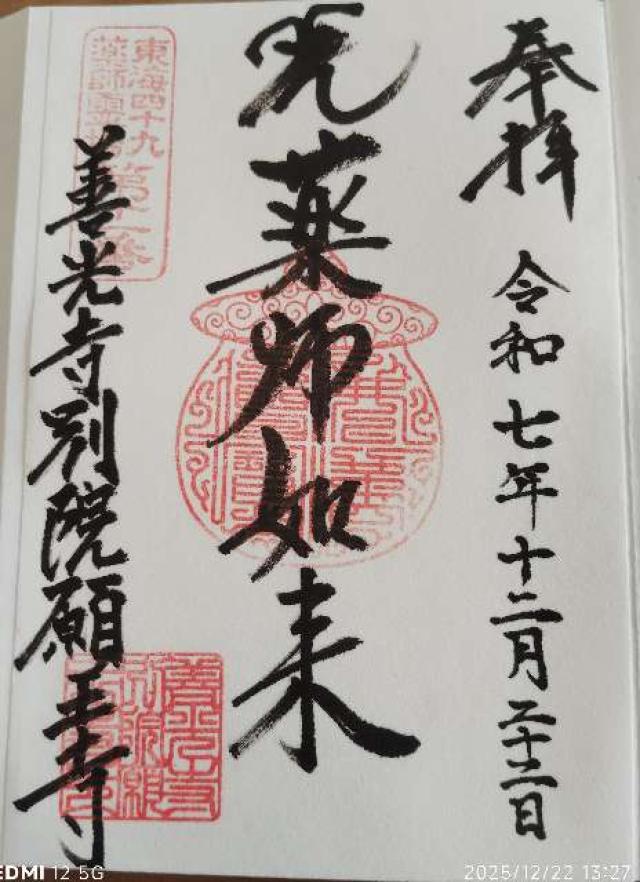 奉拝
令和七年十二月二十二日
光薬師如来
東海四十九
薬師霊場
第十一番
善光寺別院願王寺
REDMI 12 5G
2025/12/22 13:27